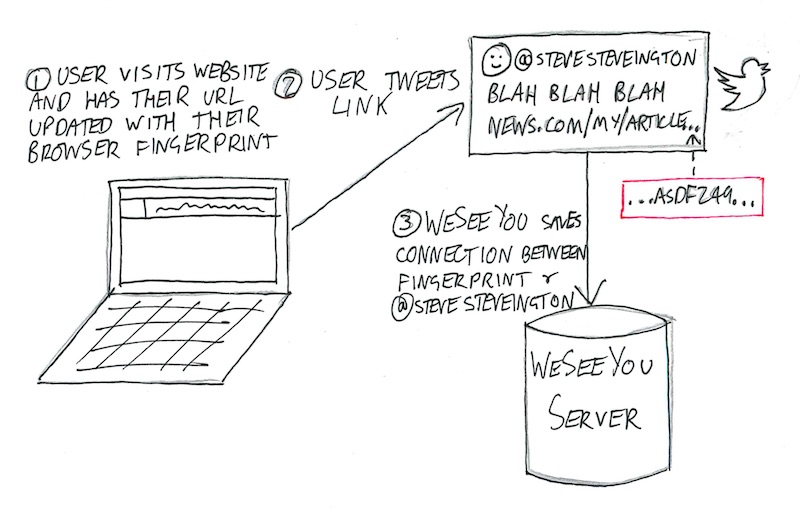 ① USER VISITS WEBSITE
AND HAS THEIR URL
UPDATED WITH THEIR
BROWSER FINGERPRINT
② USER TWEETS
LINK
@STEVESTEVEINGTON
BLAH BLAH BLAH
NEWS.COM/MY/ARTICLE...
...ASDF249...
③ WESEEYOU SAVES
CONNECTION BETWEEN
FINGERPRINT &
@STEVESTEVEINGTON
WESEEYOU
SERVER